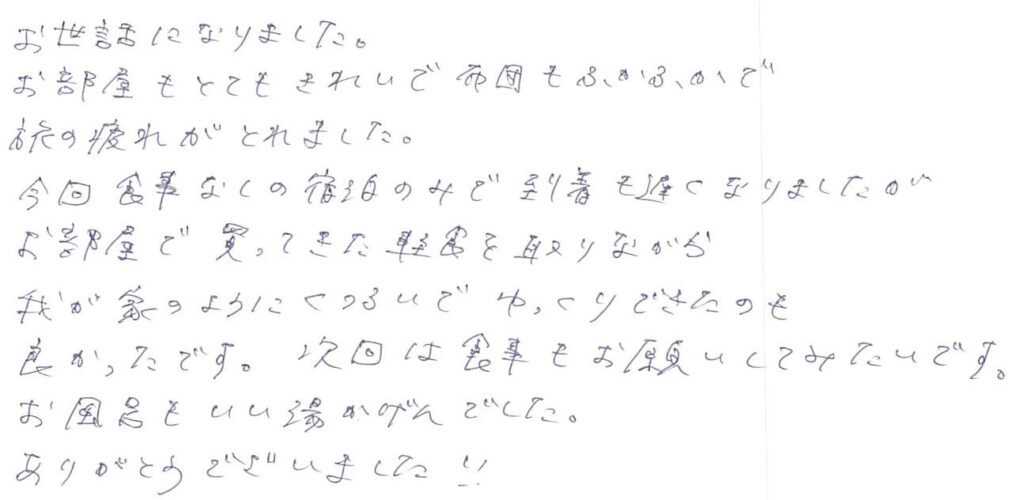 お世話になりました。
お部屋もとてもきれいで布団もふかふかで
旅の疲れがとれました。
今回食事なしの宿泊のみで到着も遅くなりましたが
お部屋で買ってきた軽食を取りながら
我が家のようにくつろいでゆっくりできたのも
良かったです。次回は食事もお願いしてみたいです。
お風呂もいい湯かげんでした。
ありがとうございました!!